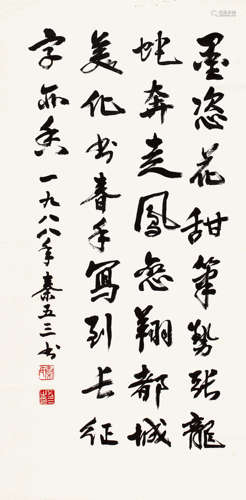 墨恣花甜笔势张龙
蛇奔走凤鸾翔都城
美化书春手写到长征
字亦香一九八八年秦五三书